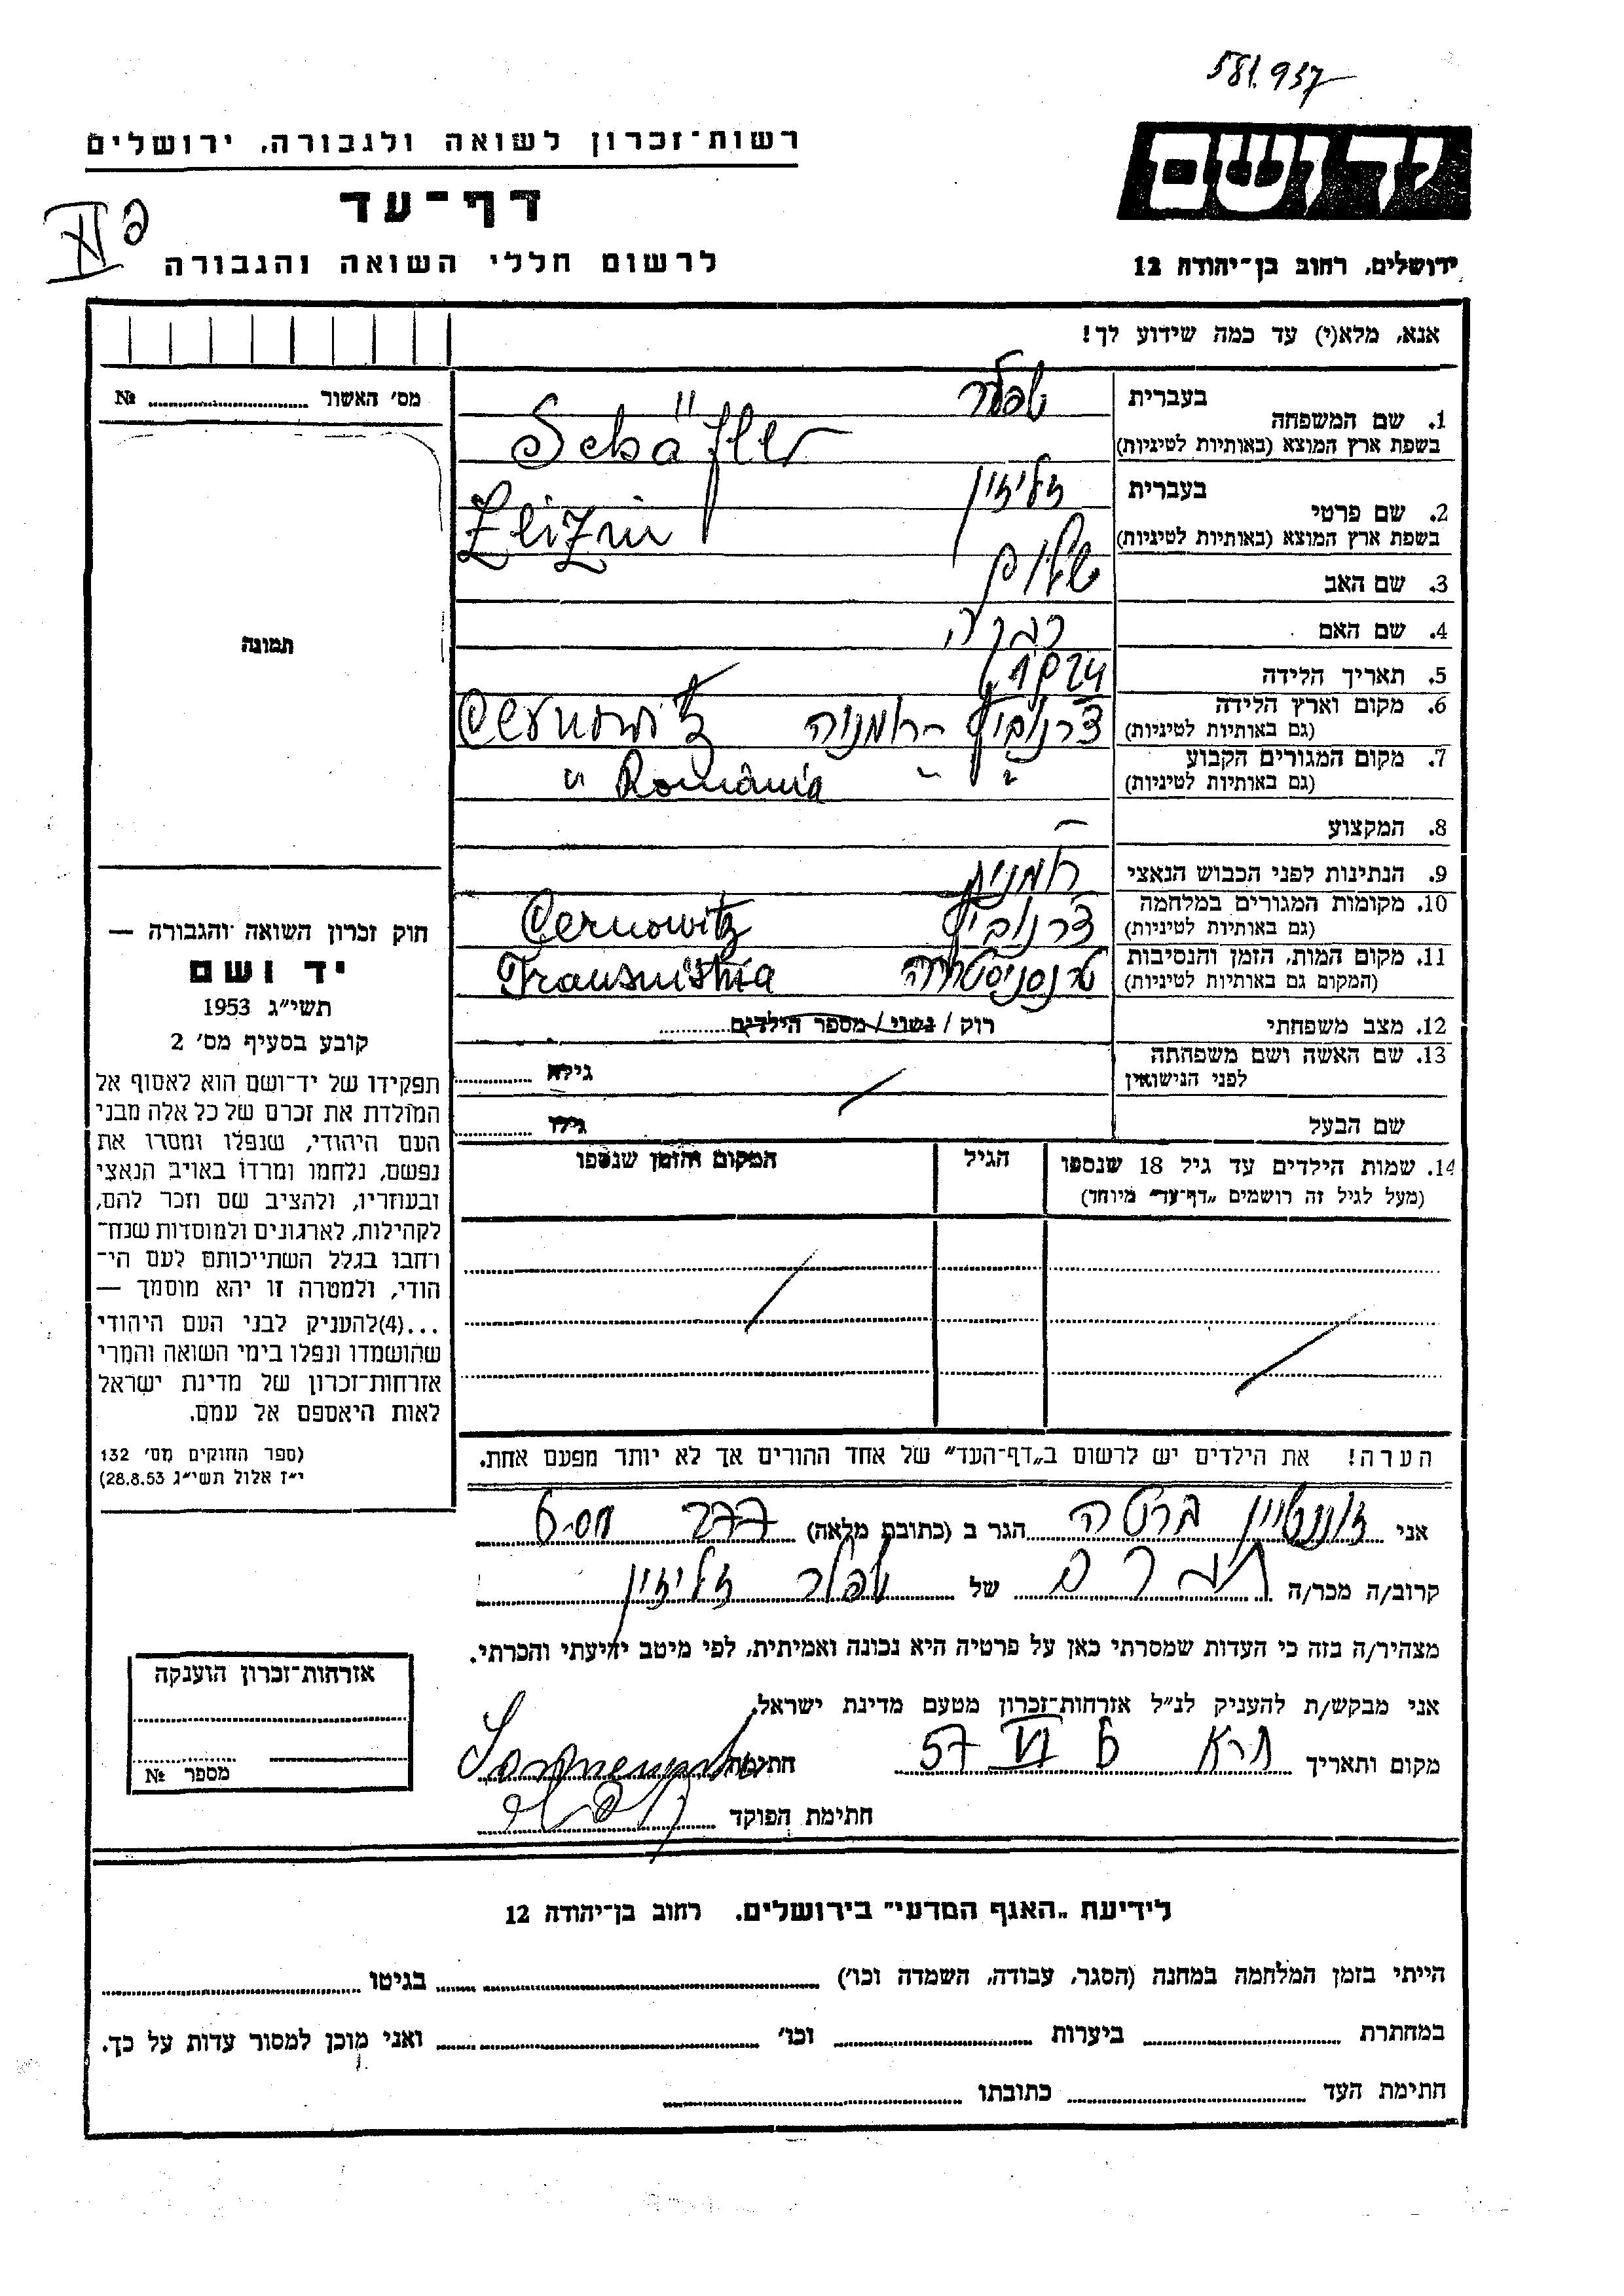 581.937
רשות־זכרון לשואה ולגבורה, ירושלים
יד ושם
דף־עד
לרשום חללי השואה והגבורה
ירושלים, רחוב בן־יהודה 12
אנא, מלא(י) עד כמה שידוע לך!
מס׳ האשור № 
1. שם המשפחה בעברית שפלר
בשפת ארץ המוצא (באותיות לטיניות) Schäffler
2. שם פרטי בעברית
בשפת ארץ המוצא (באותיות לטיניות)
3. שם האב שלום
4. שם האם רבקה
5. תאריך הלידה 1924
6. מקום וארץ הלידה צרנוביץ רומניה Cernowitz
(גם באותיות לטיניות)
7. מקום המגורים הקבוע " România
(גם באותיות לטיניות)
8. המקצוע –
9. הנתינות לפני הכבוש הנאצי רומנית
10. מקומות המגורים במלחמה צרנוביץ Cernowitz
(גם באותיות לטיניות)
11. מקום המות, הזמן והנסיבות טרנסניסטריה Transnistria
(המקום גם באותיות לטיניות)
12. מצב משפחתי רוק / נשוי / מספר הילדים
13. שם האשה ושם משפחתה
לפני הנישואין גילה
שם הבעל גילו
14. שמות הילדים עד גיל 18 שנספו הגיל המקום והזמן שנספו
(מעל לגיל זה רושמים „דף־עד” מיוחד)
הערה! את הילדים יש לרשום ב„דף־העד” של אחד ההורים אך לא יותר מפעם אחת.
תמונה
חוק זכרון השואה והגבורה —
יד ושם
תשי״ג 1953
קובע בסעיף מס׳ 2
תפקידו של יד־ושם הוא לאסוף אל
המולדת את זכרם של כל אלה מבני
העם היהודי, שנפלו ומסרו את
נפשם, נלחמו ומרדו באויב הנאצי
ובעוזריו, ולהציב שם וזכר להם,
לקהילות, לארגונים ולמוסדות שנח־
רחבו בגלל השתייכותם לעם הי־
הודי, ולמטרה זו יהא מוסמך —
...(4)להעניק לבני העם היהודי
שהושמדו ונפלו בימי השואה והמרי
אזרחות־זכרון של מדינת ישראל
לאות היאספם אל עמם.
(ספר החוקים מס׳ 132
י״ז אלול תשי״ג 28.8.53)
אני ברטה הגר ב (כתובת מלאה) 277
קרוב/ה מכר/ה של שפלר
מצהיר/ה בזה כי העדות שמסרתי כאן על פרטיה היא נכונה ואמיתית, לפי מיטב ידיעתי והכרתי.
אני מבקש/ת להעניק לנ״ל אזרחות־זכרון מטעם מדינת ישראל.
מקום ותאריך 6 VI 57 חתימה
חתימת הפוקד
אזרחות־זכרון הוענקה
מספר №
לידיעת „האגף המדעי” בירושלים. רחוב בן־יהודה 12
הייתי בזמן המלחמה במחנה (הסגר, עבודה, השמדה וכו׳) בגיטו
במחתרת ביערות וכו׳ ואני מוכן למסור עדות על כך.
חתימת העד כתובתו